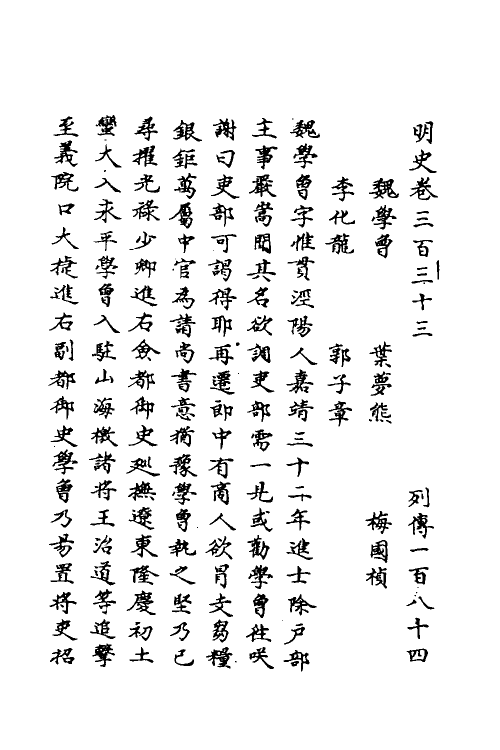 明史卷三百三十三　列傳一百八十四
魏學曾　葉夢熊　梅國楨
李化龍　郭子章
魏學曾字惟貫涇陽人嘉靖三十二年進士除戶部
主事嚴嵩聞其名欲調吏部需一見或勸學曾往咲
謝曰吏部可謁得耶再遷郎中有商人欲冐支芻糧
銀鉅萬屬中官為請尚書意猶豫學曾執之堅乃已
尋擢光祿少卿進右僉都御史廵撫遼東隆慶初土
蠻大入永平學曾入駐山海檄諸將王治道等追擊
至義院口大捷進右副都御史學曾乃易置將吏招